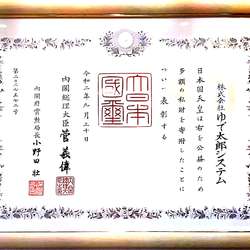 株式会社ゆで太郎システム
日本国天皇は右を公益のため
多額の私財を寄附したことに
ついて表彰する
大日本
国璽
令和二年九月三十日
内閣総理大臣 菅義偉
内閣府賞勲局長 小野田 壮